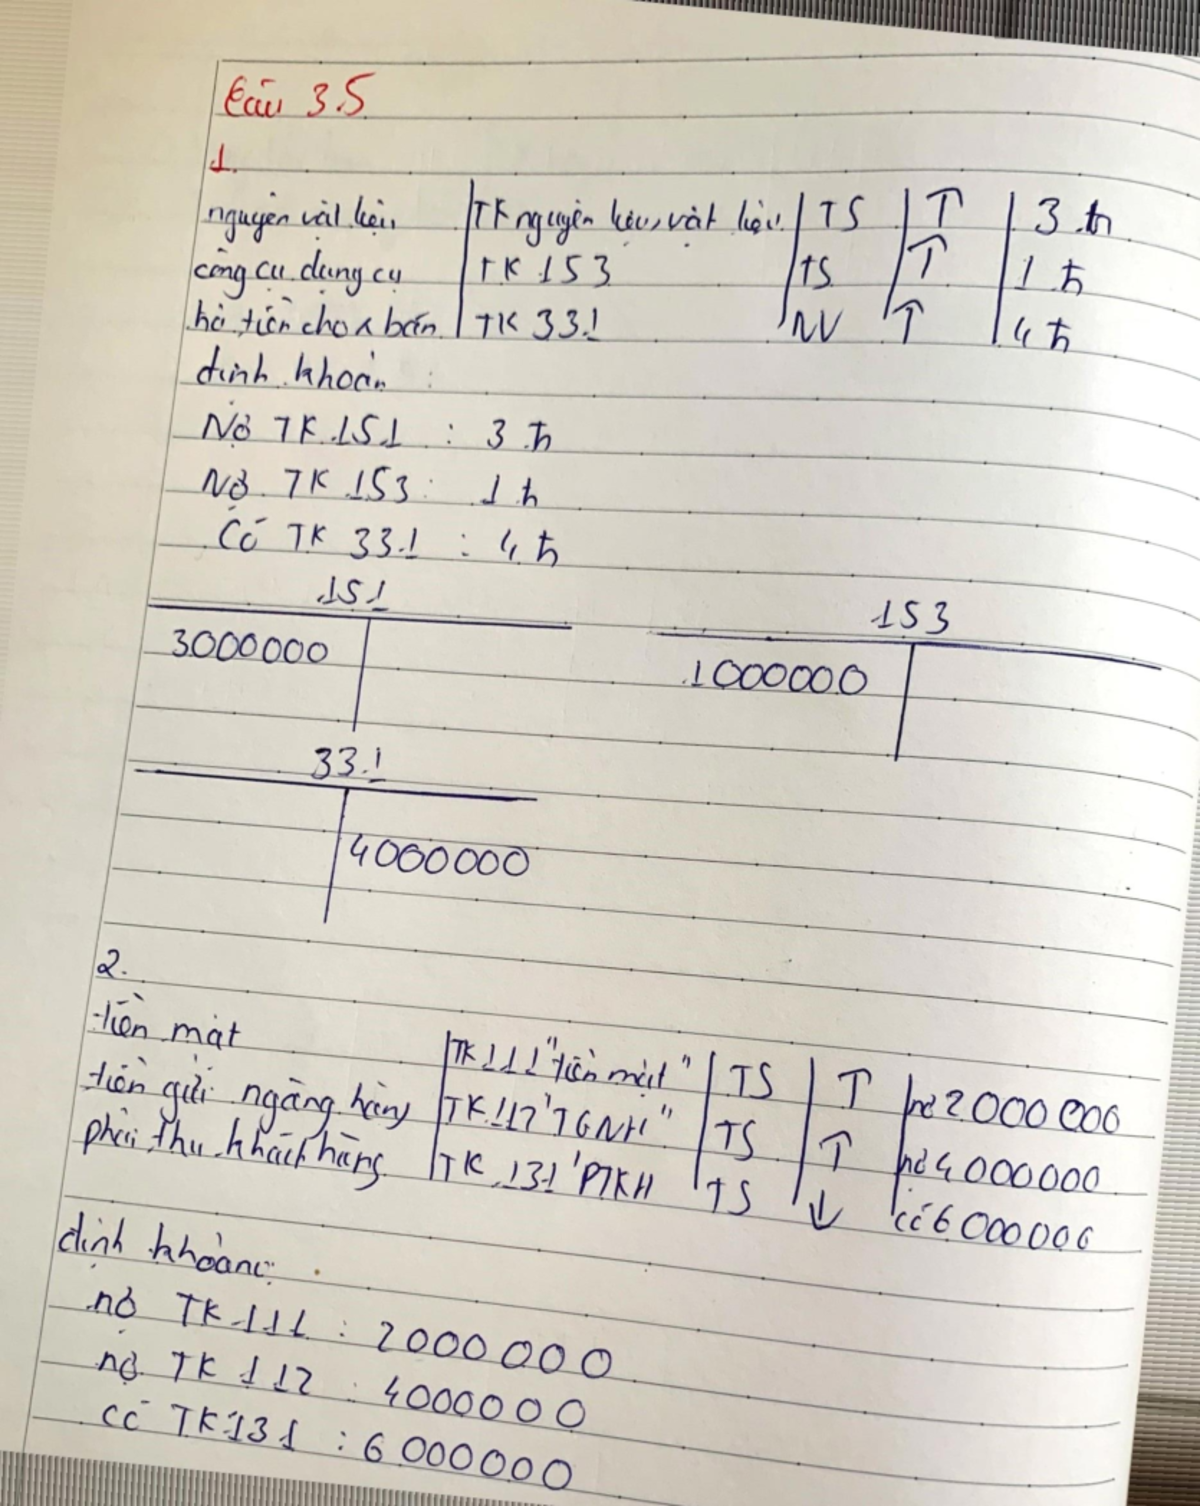 Câu 3.5
1.
nguyên vật liệu | TK nguyên liệu, vật liệu | TS | ↑ | 3 tr
công cụ dụng cụ | TK 153 | TS | ↑ | 1 tr
trả tiền cho n bán | TK 331 | NV | ↑ | 4 tr
định khoản :
Nợ TK 151 : 3 tr
Nợ TK 153 : 1 tr
Có TK 331 : 4 tr
151 153
3000000 1000000
331
4000000
2.
tiền mặt | TK 111 "tiền mặt" | TS | ↑ | nợ 2000000
tiền gửi ngân hàng | TK 112 "TGNH" | TS | ↑ | nợ 4000000
phải thu khách hàng | TK 131 'PTKH | TS | ↓ | có 6000000
định khoản
nợ TK 111 : 2000000
nợ TK 112 : 4000000
có TK 131 : 6000000